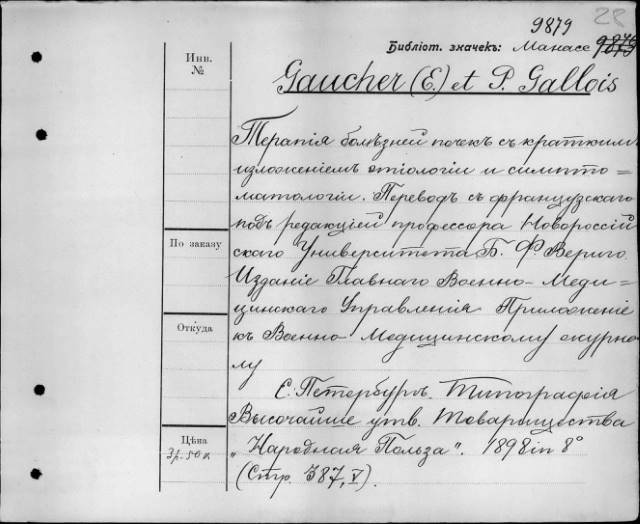 9879
28
Библiот. значекъ: Манасе 9879
Инв.
№
Gaucher (E.) et P. Gallois
Терапiя болѣзней почекъ съ краткимъ
изложенiемъ этiологiи и симпто=
матологiи. Переводъ съ французскаго
подъ редакцiей профессора Новороссiй
скаго Университета Б. Ф. Вериго.
Изданiе Главнаго Военно-Меди=
цинскаго Управленiя Приложенiе
къ Военно-Медицинскому журна
лу
По заказу
Откуда
С. Петербургъ. Типографiя
Высочайше утв. Товарищества
Цѣна
3 р. 50 к
„Народная Польза". 1898 in 8°
(Стр. 387, V).